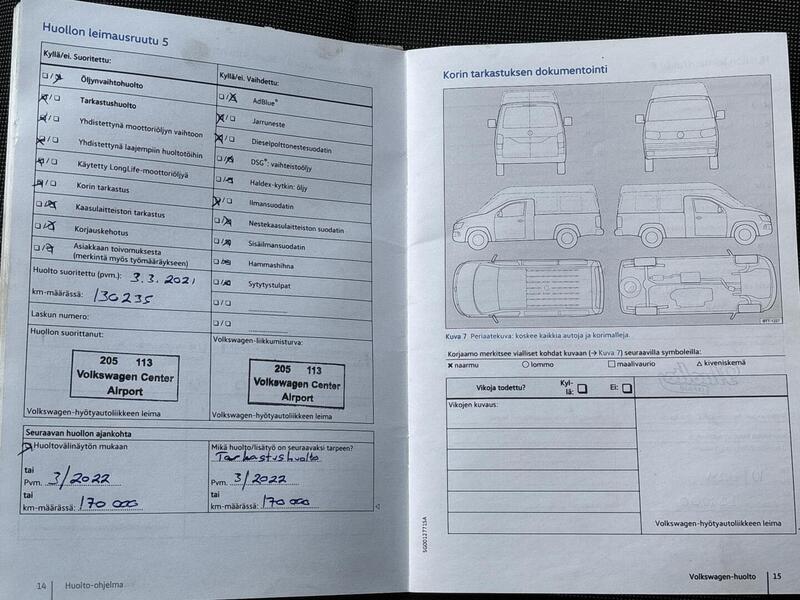 Huollon leimausruutu 5
Kyllä/ei. Suoritettu:
Öljynvaihtohuolto
Tarkastushuolto
Yhdistettynä moottoriöljyn vaihtoon
Yhdistettynä laajempiin huoltotöihin
Käytetty LongLife-moottoriöljyä
Korin tarkastus
Kaasulaitteiston tarkastus
Korjauskehotus
Asiakkaan toivomuksesta
(merkintä myös työmääräykseen)
Huolto suoritettu (pvm.): 3.3.2021
km-määrässä: 130235
Laskun numero:
Huollon suorittanut:
205 113
Volkswagen Center
Airport
Volkswagen-hyötyautoliikkeen leima
Kyllä/ei. Vaihdettu:
AdBlue®
Jarruneste
Dieselpolttonestesuodatin
DSG®: vaihteistoöljy
Haldex-kytkin: öljy
Ilmansuodatin
Nestekaasulaitteiston suodatin
Sisäilmansuodatin
Hammashihna
Sytytystulpat
Volkswagen-liikkumisturva:
205 113
Volkswagen Center
Airport
Volkswagen-hyötyautoliikkeen leima
Seuraavan huollon ajankohta
Huoltovälinäytön mukaan
tai
Pvm. 3/2022
tai
km-määrässä: 170 000
Mikä huolto/lisätyö on seuraavaksi tarpeen?
Tarkastushuolto
Pvm. 3/2022
tai
km-määrässä: 170 000
14 Huolto-ohjelma
Korin tarkastuksen dokumentointi
BTT-1207
Kuva 7 Periaatekuva: koskee kaikkia autoja ja korimalleja.
Korjaamo merkitsee vialliset kohdat kuvaan (→ Kuva 7) seuraavilla symboleilla:
× naarmu ○ lommo □ maalivaurio △ kiveniskemä
Vikoja todettu? Kyl-
lä: □ Ei: □
Vikojen kuvaus:
Volkswagen-hyötyautoliikkeen leima
SG0012771SA
Volkswagen-huolto 15